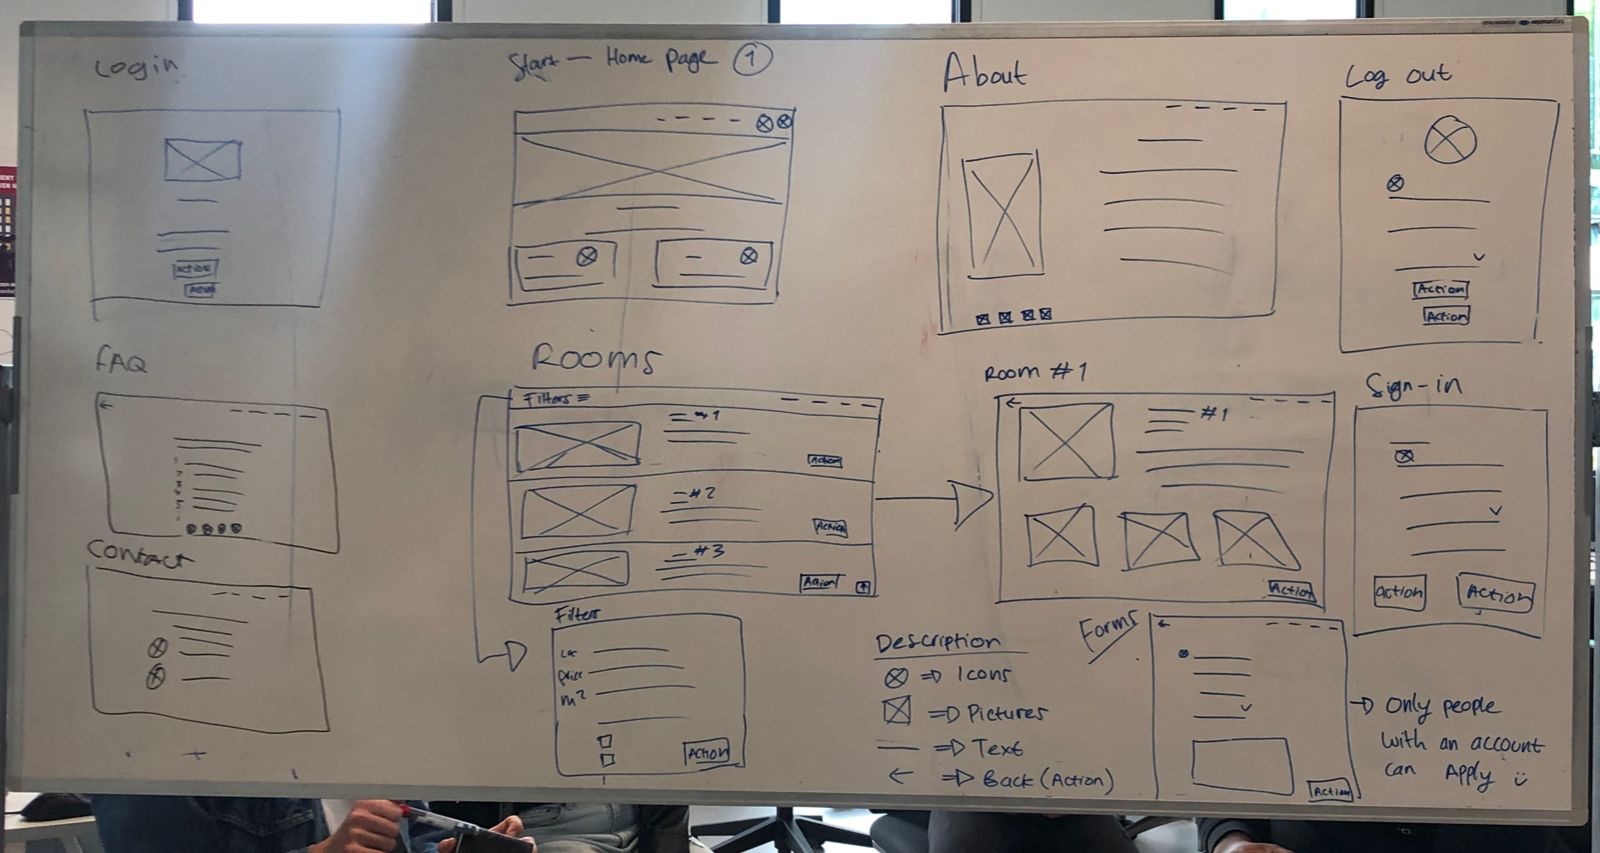 Login
Action
Action
Start — Home page 1
About
Log out
Action
Action
FAQ
Rooms
Filters
#1
Action
#2
Action
#3
Action
Room #1
#1
Action
Sign-in
action
Action
Contact
Filters
price
m²
Action
Description
Icons
Pictures
Text
Back (Action)
Forms
Action
Only people
with an account
can Apply